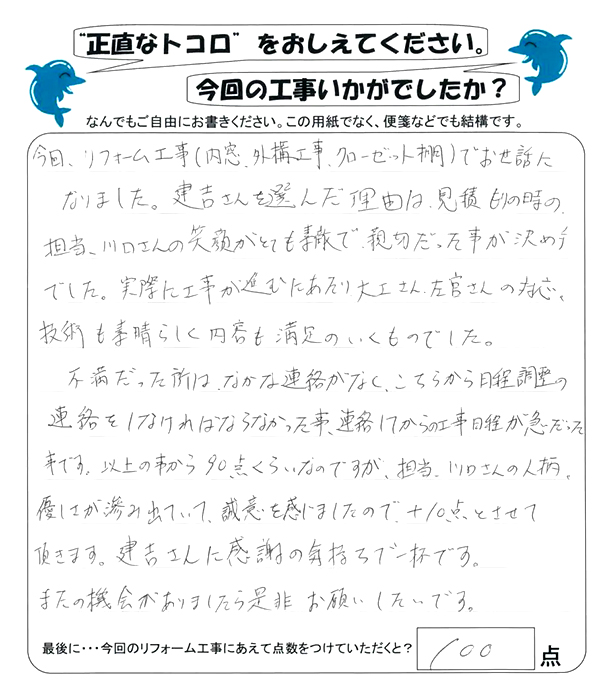 "正直なトコロ"をおしえてください。
今回の工事いかがでしたか？
なんでもご自由にお書きください。この用紙でなく、便箋などでも結構です。
今回、リフォーム工事(内窓、外構工事、クローゼット棚)でお世話に
なりました。建吉さんを選んだ理由は、見積もりの時の、
担当、川口さんの笑顔がとても素敵で、親切だった事が決め手
でした。実際に工事が進むにあたり大工さん、左官さんの対応、
技術も素晴らしく内容も満足のいくものでした。
不満だった所は、なかなか連絡がなく、こちらから日程調整の
連絡をしなければならなかった事、連絡してからの工事日程が急だった
事です。以上の事から90点くらいなのですが、担当、川口さんの人柄、
優しさが滲み出ていて、誠意を感じましたので、+10点とさせて
頂きます。建吉さんに感謝の気持ちで一杯です。
またの機会がありましたら是非お願いしたいです。
最後に・・・今回のリフォーム工事にあえて点数をつけていただくと？ 100 点